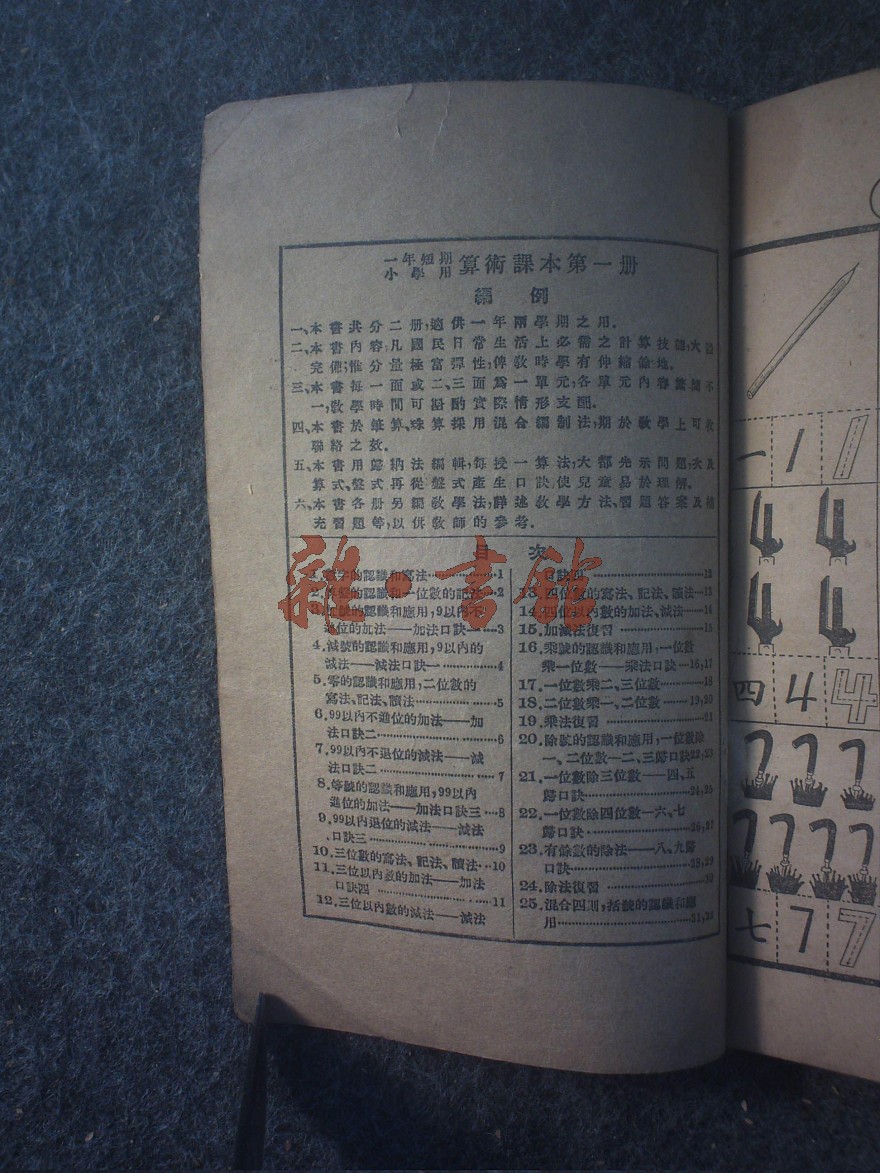 一年短期
小學用
算術課本第一册
編例
一、本書共分二册,適供一年兩學期之用。
二、本書內容,凡國民日常生活上必需之計算技能,大
完備;惟分量極富彈性,俾教時學有伸縮餘地。
三、本書每一面或二、三面爲一單元,各單元內容繁簡不
一,教學時間可斟酌實際情形支配。
四、本書於筆算、珠算採用混合編制法,期於教學上可收
聯絡之效。
五、本書用歸納法編輯,每授一算法,大都先示問題,次及
算式、盤式再從盤式產生口訣,使兒童易於理解。
六、本書各册另編教學法,詳述教學方法、習題答案及補
充習題等,以供教師的參考。
目次
1.數字的認識和寫法…1
2.算盤的認識和一位數的記法…2
3.加號的認識和應用,9以內不
進位的加法——加法口訣一…3
4.減號的認識和應用,9以內的
減法——減法口訣一…4
5.零的認識和應用,二位數的
寫法、記法、讀法…5
6.99以內不進位的加法——加
法口訣二…6
7.99以內不退位的減法——減
法口訣二…7
8.等號的認識和應用,99以內
進位的加法——加法口訣三…8
9.99以內退位的減法——減法
口訣三…9
10.三位數的寫法、記法、讀法…10
11.三位以內數的加法——加法
口訣四…11
12.三位以內數的減法——減法
口訣四…12
13.四位數的寫法、記法、讀法…13
14.四位以內數的加法、減法…14
15.加減法復習…15
16.乘號的認識和應用,一位數
乘一位數——乘法口訣…16,17
17.一位數乘二、三位數…18
18.二位數乘一、二位數…19,20
19.乘法復習…21
20.除號的認識和應用,一位數除
一、二位數—二、三歸口訣22,23
21.一位數除三位數——四、五
歸口訣…24,25
22.一位數除四位數—六、七
歸口訣…26,27
23.有餘數的除法——八、九歸
口訣…28,29
24.除法復習…30
25.混合四則,括號的認識和應
用…31,32
雜·書館
一 1 1
4 4
4 4
四 4 4
7 7 7
7 7 7 7
七 7 7